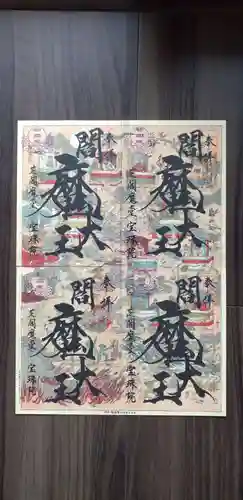 奉拝
閻魔大王
芝閻魔堂 宝珠院
奉拝
閻魔大王
芝閻魔堂 宝珠院
奉拝
閻魔大王
芝閻魔堂 宝珠院
奉拝
閻魔大王
芝閻魔堂 宝珠院